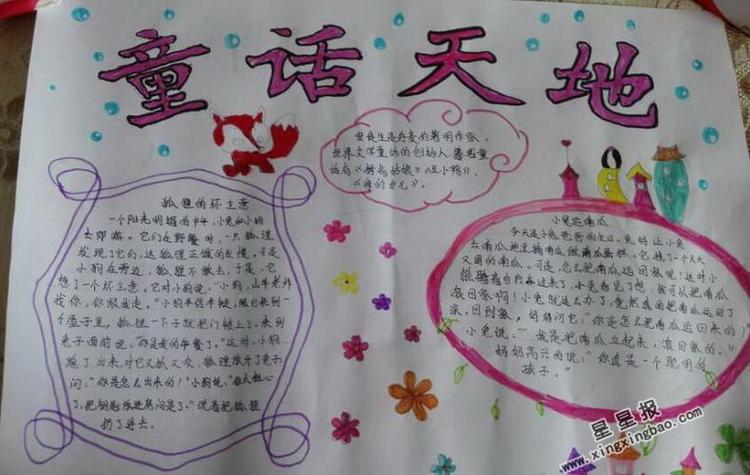 童话天地
安徒生是丹麦的著明作家,
世界文学童话的创始人,著名童
话有《拇指姑娘》《丑小鸭》、
《海的女儿》。
狐狸的坏主意
一个阳光明媚的中午,小兔和小狗
去郊游。它们在野餐时,一只狐狸
发现了它们,这狐狸正饿的发慌。可是
小狗在旁边,狐狸不敢去。于是,它
想了一个坏主意。它对小狗说:“小狗,山羊老师
找你,你跟我走。”小狗半信半疑,跟它来到一
个屋子里,狐狸一下子就把门锁上了,来到
兔子面前说:“你是我的午餐了。”这时,小狗
跑了出来,对它又抓又咬,狐狸放开了兔子
问:“你是怎么出来的!”小狗说:“你太粗心
了,把钥匙放进房间是了。”说着把狐狸
扔了再去。
小兔运南瓜
今天是小兔爸爸的生日。兔妈让小兔
去南瓜地里摘南瓜做南瓜蛋糕。它摘了一个又大
又圆的南瓜。可是,怎么把南瓜运回家呢!这时小
熊骑着自行车过来了,小兔看见了想:我可以把南瓜
滚回家啊!小兔就这么办了,竟然真的把南瓜运回了
家,回到家,妈妈问它:“你是怎么把南瓜运回来的”
小兔说:“我是把南瓜立起来,滚回家的。”
妈妈高兴的说:“你真是一个聪明的
孩子。”
星星报
www.xingxingbao.com